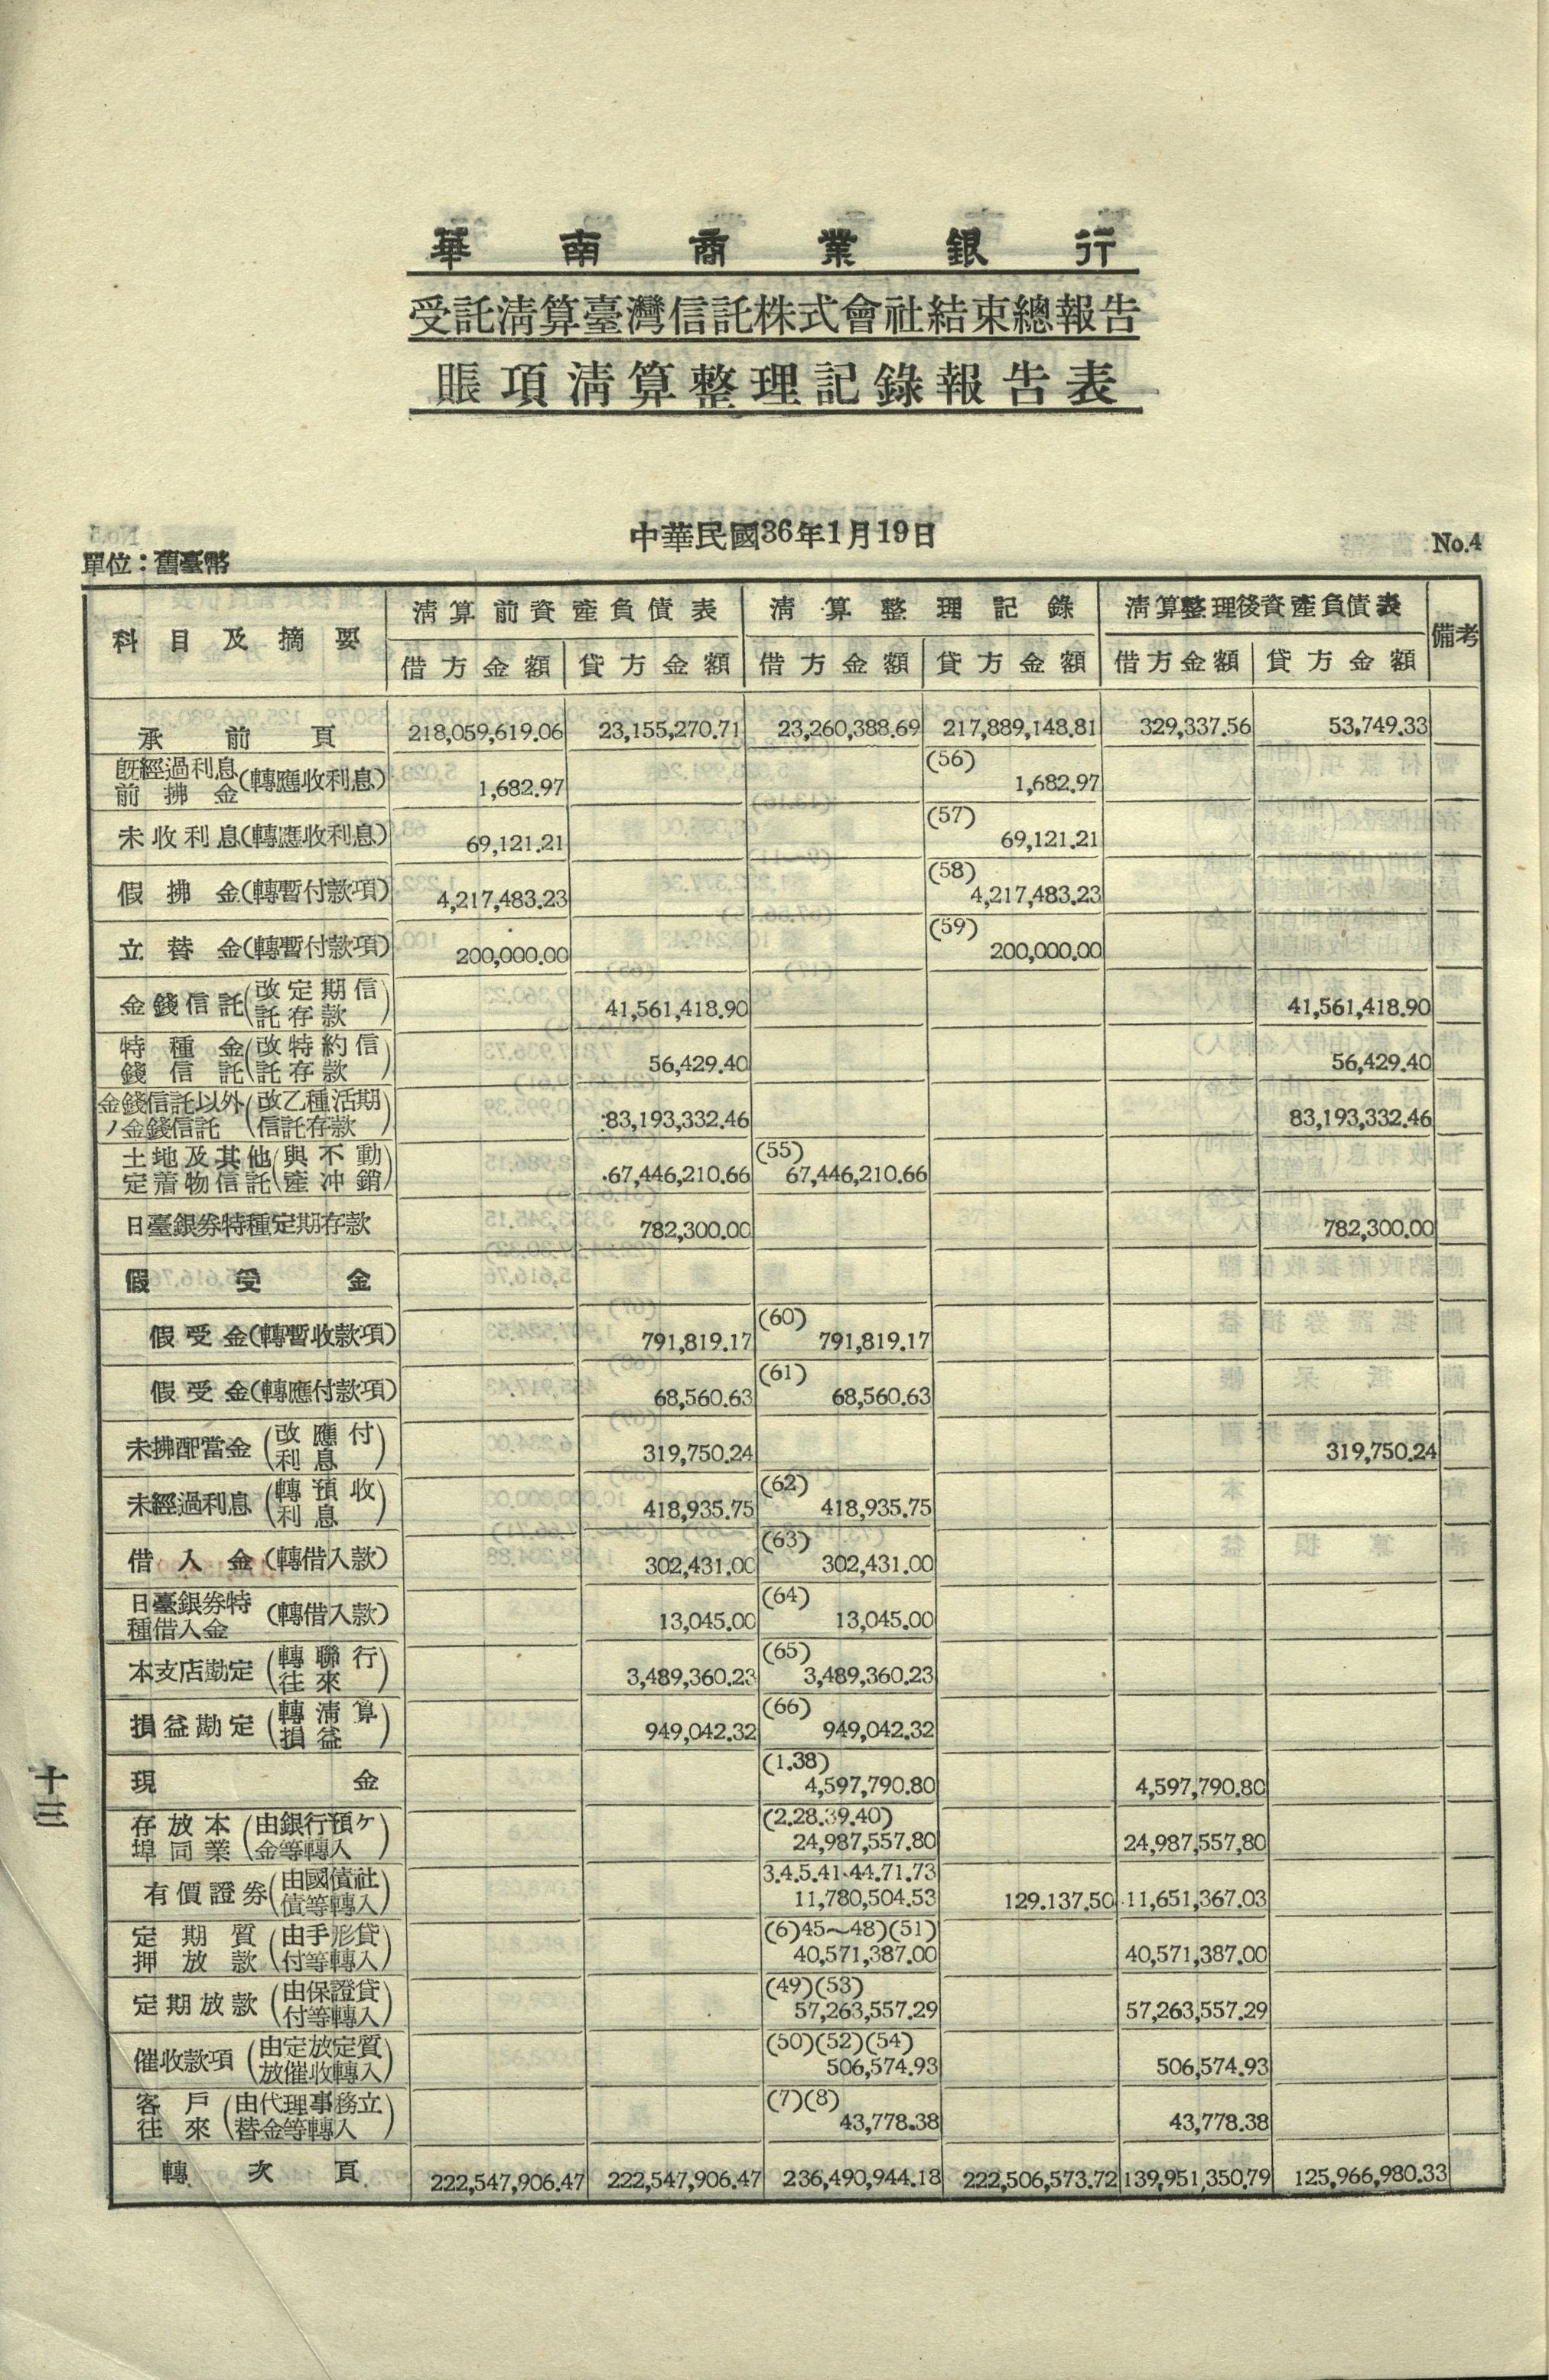 華南商業銀行
受託清算臺灣信託株式會社結束總報告
賬項清算整理記錄報告表
中華民國36年1月19日
單位：舊臺幣 No.4
科目及摘要 清算前資產負債表 清算整理記錄 清算整理後資產負債表 備考
借方金額 貸方金額 借方金額 貸方金額 借方金額 貸方金額
承前頁 218,059,619.06 23,155,270.71 23,260,388.69 217,889,148.81 329,337.56 53,749.33
既經過利息前拂金(轉應收利息) 1,682.97 (56) 1,682.97
未收利息(轉應收利息) 69,121.21 (57) 69,121.21
假拂金(轉暫付款項) 4,217,483.23 (58) 4,217,483.23
立替金(轉暫付款項) 200,000.00 (59) 200,000.00
金錢信託(改定期信託存款) 41,561,418.90 41,561,418.90
特種金錢信託(改特約信託存款) 56,429.40 56,429.40
金錢信託以外ノ金錢信託(改乙種活期信託存款) 83,193,332.46 83,193,332.46
土地及其他定着物信託(與不動產沖銷) 67,446,210.66 (55) 67,446,210.66
日臺銀券特種定期存款 782,300.00 782,300.00
假受金
假受金(轉暫收款項) 791,819.17 (60) 791,819.17
假受金(轉應付款項) 68,560.63 (61) 68,560.63
未拂配當金(改應付利息) 319,750.24 319,750.24
未經過利息(轉預收利息) 418,935.75 (62) 418,935.75
借入金(轉借入款) 302,431.00 (63) 302,431.00
日臺銀券特種借入金(轉借入款) 13,045.00 (64) 13,045.00
本支店勘定(轉聯行往來) 3,489,360.23 (65) 3,489,360.23
損益勘定(轉清算損益) 949,042.32 (66) 949,042.32
現金 (1.38) 4,597,790.80 4,597,790.80
存放本埠同業(由銀行預ケ金等轉入) (2.28.39.40) 24,987,557.80 24,987,557,80
有價證券(由國債社債等轉入) 3.4.5.41-44.71.73 11,780,504.53 129.137.50 11,651,367.03
定期質押放款(由手形貸付等轉入) (6)45～48)(51) 40,571,387.00 40,571,387.00
定期放款(由保證貸付等轉入) (49)(53) 57,263,557.29 57,263,557.29
催收款項(由定放定質放催收轉入) (50)(52)(54) 506,574.93 506,574.93
客戶往來(由代理事務立替金等轉入) (7)(8) 43,778.38 43,778.38
轉次頁 222,547,906.47 222,547,906.47 236,490,944.18 222,506,573.72 139,951,350.79 125,966,980.33
十三